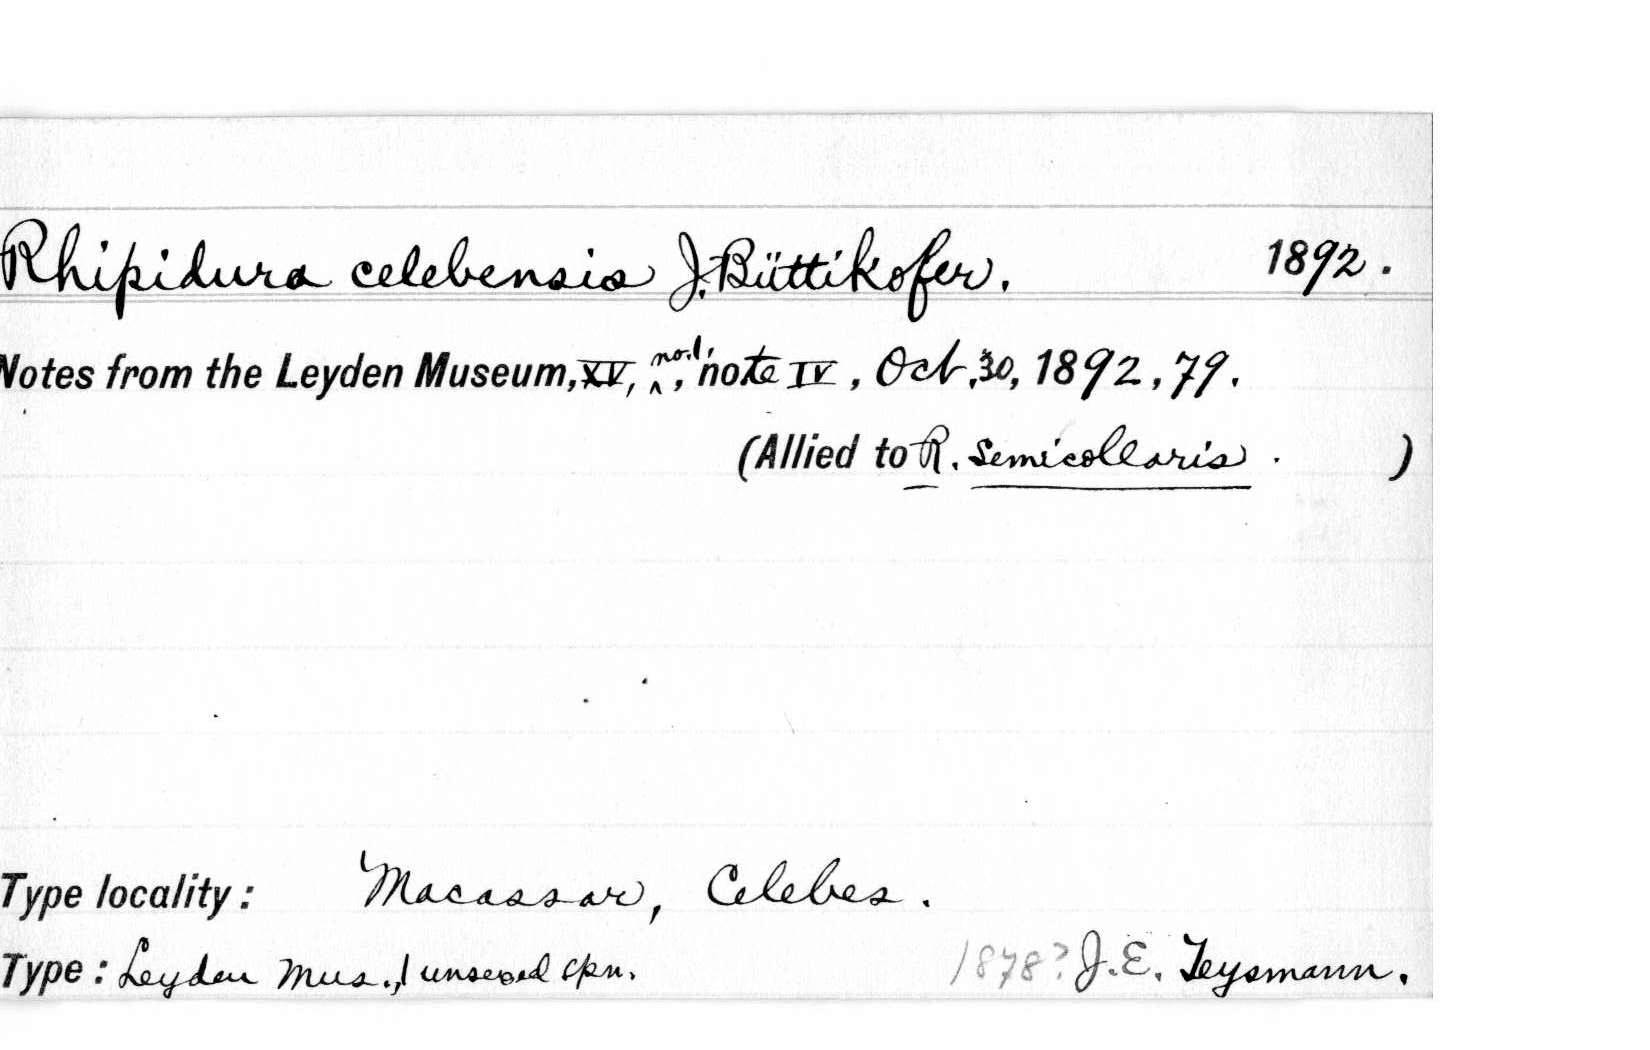 Rhipidura celebensis J. Büttikofer. 1892.
Notes from the Leyden Museum, XV, no.1, note IV, Oct. 30, 1892, 79.
(Allied to R. semicollaris. )
Type locality: Macassar, Celebes.
Type: Leyden Mus., 1 unsexed spn. 1878? J.E. Teysmann.